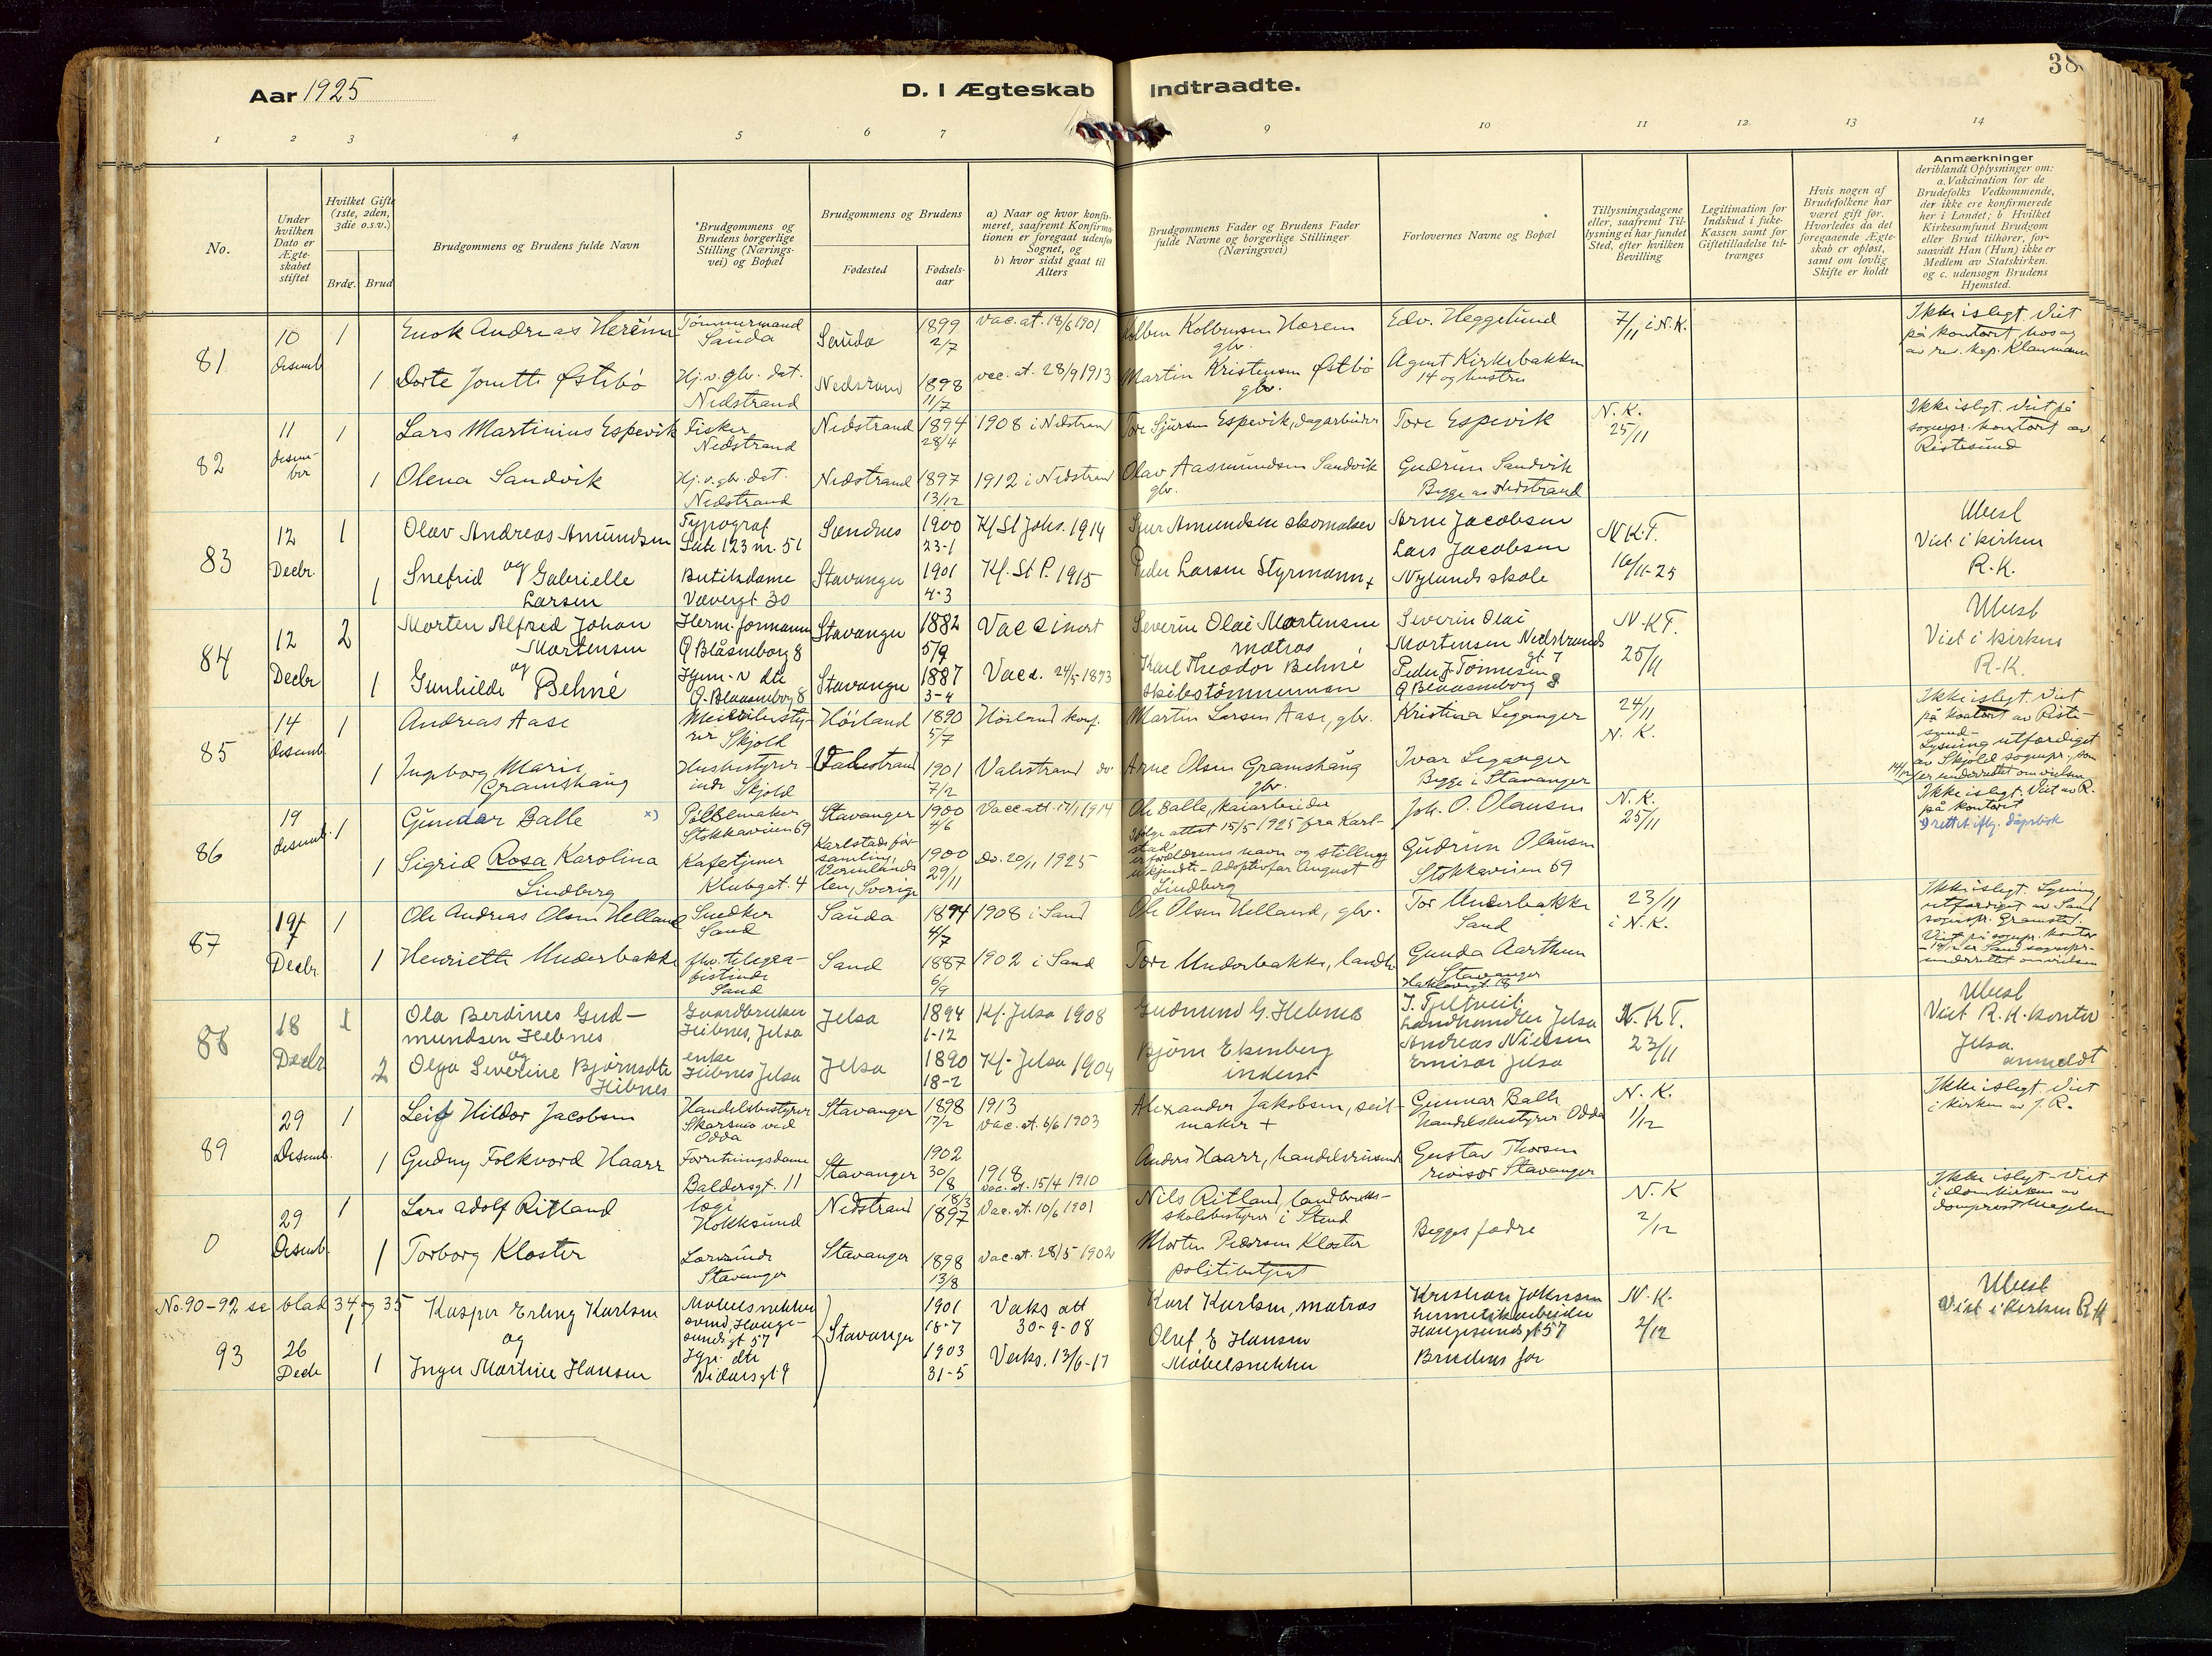 38
Aar 1925
D. I Ægteskab Indtraadte.
1 2 3 4 5 6 7 9 10 11 12 13 14
No.
Under hvilken Dato er Ægteskabet stiftet
Hvilket Gifte (1ste, 2den, 3die o.s.v.)
Brdg. Brud
Brudgommens og Brudens fulde Navn
*Brudgommens og Brudens borgerlige Stilling (Næringsvei) og Bopæl
Brudgommens og Brudens
Fødested
Fødselsaar
a) Naar og hvor konfirmeret, saafremt Konfirmationen er foregaaet udenfor Sognet, og
b) hvor sidst gaat til Alters
Brudgommens Fader og Brudens Fader fulde Navne og borgerlige Stillinger (Næringsvei)
Forlovernes Navne og Bopæl
Tillysningsdagene eller, saafremt Tillysning ei har fundet Sted, efter hvilken Bevilling
Legitimation for Indskud i Enke-Kassen samt for Giftetilladelse tiltrænges
Hvis nogen af Brudefolkene har været gift før. Hvorledes da det foregaaende Ægteskab er opløst, samt om lovlig Skifte er holdt
Anmærkninger
deriblandt Oplysninger om: a. Vakcination for de Brudefolks Vedkommende, der ikke ere konfirmerede her i Landet; b Hvilket Kirkesamfund Brudgom eller Brud tilhører, forsaavidt Han (Hun) ikke er Medlem av Statskirken. og c. udensogn Brudens Hjemsted.
81 10 desemb. 1 Enok Andreas Tømmermand Sauda Sauda 1899 2/7 Vac. at. 18/6 1901 Kolben Kolbensen Hærem gbr. Edv. Heggelund 7/11 i N.K. Ikke i slegt. Viet på kontoret
1 Dorte Østebø Hj. v. gbr. dat. Nedstrand Nedstrand 1898 11/7 vac. at. 28/9 1913 Martin Kristensen Østbø gbr. Agent Kirkebakken 14 og hustru
82 11 desember 1 Lars Martinius Espevik Fisker Nedstrand Nedstrand 1894 28/4 1908 i Nedstrand Tore Sjursen Espevik, dagarbeider Tore Espevik N.K. 25/11 Ikke i slgt. Viet på sognepr. kontoret av Ristesund
1 Olena Sandvik Hj. v. gbr. dat. Nedstrand Nedstrand 1897 13/12 1912 i Nedstrand Olav Aasmundsen Sandvik gbr. Gudrun Sandvik Begge av Nedstrand
83 12 Decbr. 1 Olav Andreas Amundsen og Typograf 123 nr. 51 Sandnes 1900 23-1 Kf St Johs. 1914 Amundsen skomaker Arne Jacobsen N.K.T. Ubesl Viet i kirken R.K.
1 Snefrid Gabrielle Larsen Butikdame Vævergt 30 Stavanger 1901 4-3 Kf. St P. 1915 Peder Larsen Styrmann + Lars Jacobsen Nylunds skole 16/11-25
84 12 Decbr 2 Morten Alfred Johan Mortensen og Herm. formann Ø Blåsenborg 8 Stavanger 1882 5/9 Vaccinert Severin Olai Mortensen matros Severin Olai Mortensen Nedstrands gt 7 N.K.T. 25/11 Ubesl Viet i kirken R.K.
1 Gunhilde Behné Hjem. v dtr Ø. Blaasenborg 8 Stavanger 1887 3-4 Vacc. 24/5 1893 Karl Theodor Behné skibstømmerman Peder J. Tønnesen Ø Blaasenborg 8
85 14 desemb 1 Andreas Aase Meieribestyrer Skjold Höiland 1890 5/7 Höiland konf. Martin Larsen Aase, gbr. Kristina Leganger 24/11 N.K. Ikke i slegt. Viet på kontoret av Ristesund. Lysning utfærdiget av Skjold sognepr., som 14/12 er underrettet om vielsen
1 Ingeborg Marie Gramshaug Husbestyrerinde Skjold Valestrand 1901 7/2 Valestrand do Arne Olsen Gramshaug gbr. Ivar Leganger Begge i Stavanger
86 19 desemb. 1 Gunder Balle x) Pølsemaker Stokkaveien 69 Stavanger 1900 4/6 Vacc. att. 17/1 1914 Ole Balle, kaiarbeider Joh. O. Olausen N.K. 25/11 Ikke i slegt. Viet av R. på kontoret x) rettet iflg. dåpsbok
1 Sigrid Rosa Karolina Lindberg Kafetjener Klubgat. 4 Karlstads församling, Vermlands len, Sverige 1900 29/11 do. 20/11 1925 Ifølge attest 15/5 1925 fra Karlstad er forældrenes navn og stilling ukjendt - Adoptivfar August Lindberg Gudrun Olausen Stokkaveien 69
87 19/7 Decbr. 1 Ole Andreas Olsen Helland Snedker Sand Sauda 1894 4/7 1908 i Sand Ole Olsen Helland, gbr. Tor Underbakke Sand 23/11 i N.K. Ikke i slegt. Lysning utfærdiget av Sand sognepr. Gramstad. Viet på sognepr. kontor - 19/12 er Sand sognepr. underrettet om vielsen
1 Henriette Underbakke fhv. telegrafistinde Sand Sand 1887 6/9 1902 i Sand Tore Underbakke, landh. Gunda Aarthun Stavanger
88 18 Decbr 1 Ola Berdines Gudmundsen Hebnes og Gaardbruker Hebnes, Jelsa Jelsa 1894 1-12 Kf. Jelsa 1908 Gudmund G. Hebnes J. Tjeltveit Landhandler Jelsa N.K.T. Ubesl Viet R.K. kontor
2 Olga Severine Bjørnsdtr Hebnes enke Hebnes Jelsa Jelsa 1890 18-2 Kf. Jelsa 1904 Bjørn Ekenberg inderst Andreas Nielsen Emisær Jelsa 23/11 Jelsa anmeldt
89 29 Desemb. 1 Leif Hildor Jacobsen Handelsbestyrer Skarsmo ved Odda Stavanger 1898 17/2 1913 Vac. at. 6/6 1903 Alexander Jakobsen, seilmaker + Gunnar Balle Handelsbestyrer Odda N.K. 1/12 Ikke i slegt. Viet i kirken av J. R.
1 Gudny Folkvord Haarr Forretningsdame Baldersgt. 11 Stavanger 1902 30/8 1918 Vac. at. 15/4 1910 Anders Haarr, handelsreisende Gustav Thorsen revisor Stavanger
0 29 Desemb. 1 Lars Adolf Ritland Hokksund Nedstrand 18/3 1897 Vac. at. 10/6 1901 Nils Ritland, landbruksskolebestyrer i Stend N.K 2/12 Ikke i slegt - Viet i domkirken av domprost
1 Torborg Kloster Lærerinde Stavanger Stavanger 1898 13/8 Vac. at. 28/5 1902 Morten Pedersen Kloster politibetjent Begges fædre
No. 90-92 se blad 34 og 35
93 26 Decbr 1 Kasper Erling Karlsen og Møbelsnekker Haugesundsgt 57 Stavanger 1901 18-7 Vaks att 30-9-08 Karl Karlsen, matros Kristian Johnsen hermetikkarbeider Haugesundsgt 57 N.K. 2/12 Ubesl Viet i kirken R.K
1 Inger Martine Hansen Hjv. dtr Vidarsgt 9 1903 31-5 Vaks. 13/6-17 Oluf E Hansen Møbelsnekker Brudens far